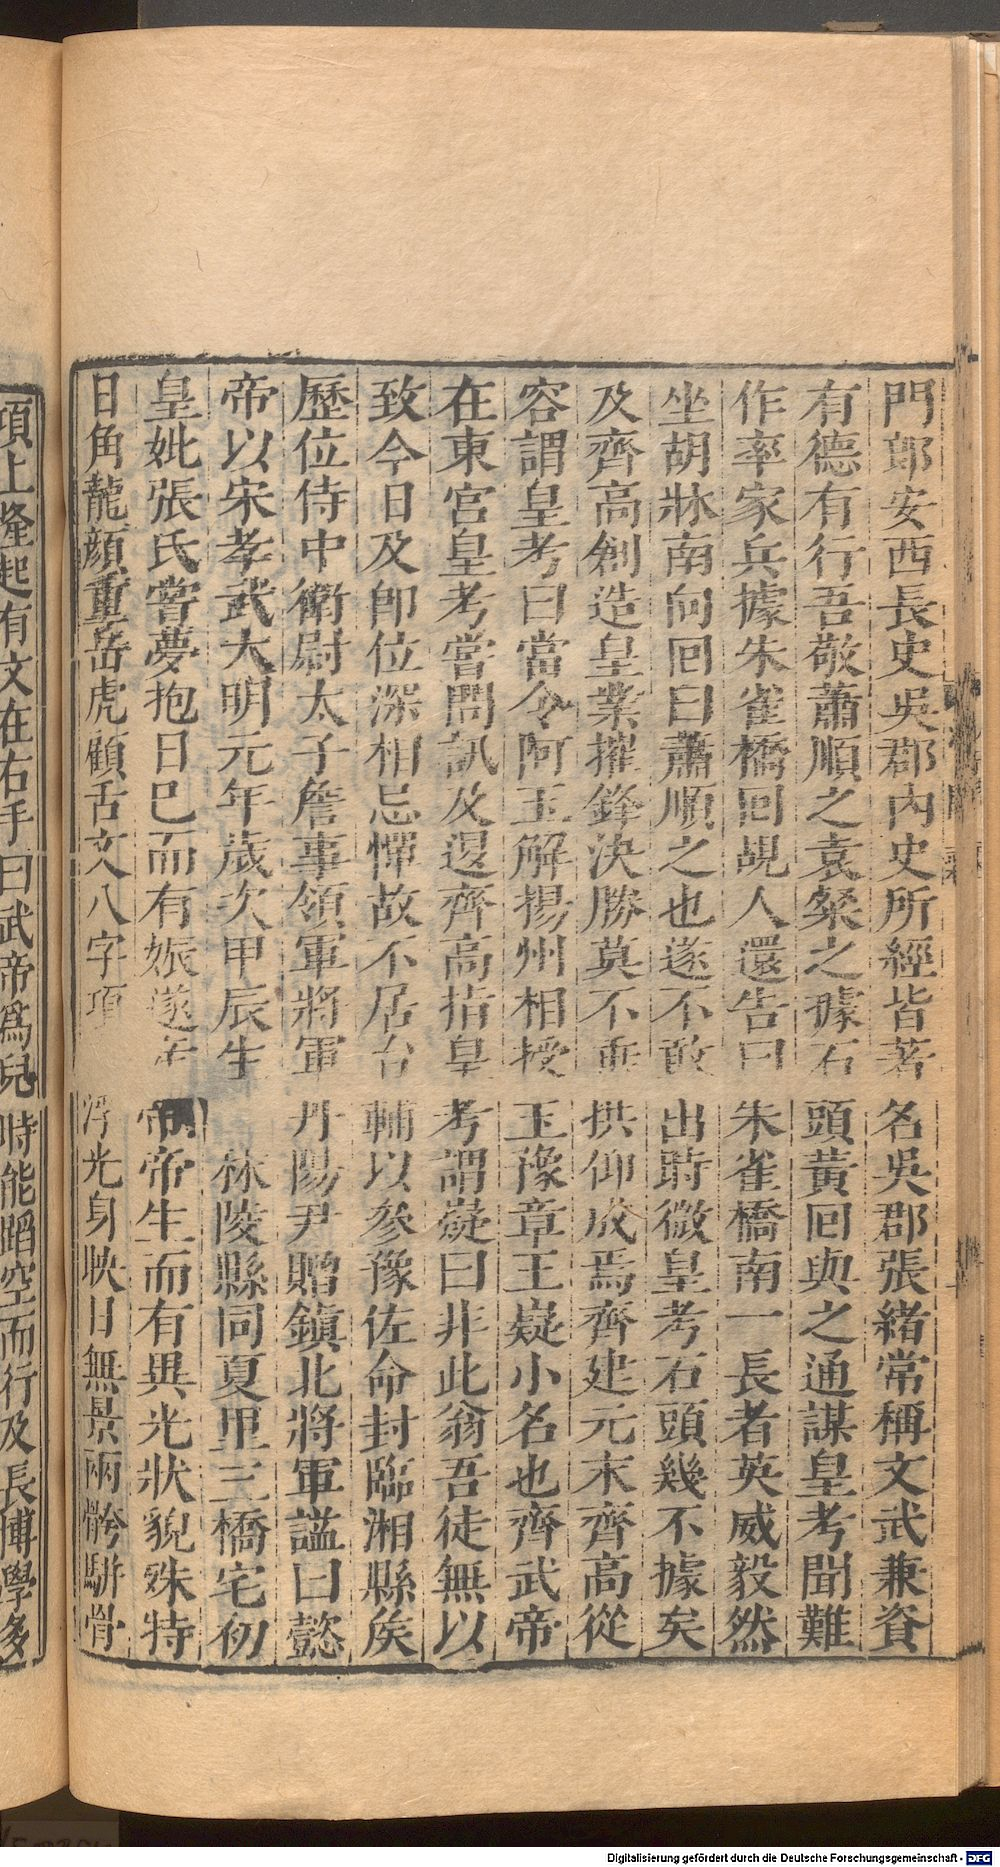 門郎安西長史吳郡內史所經皆著名吳郡張緒常稱文武兼資
有德有行吾敬蕭順之袁粲之據石頭黃回與之通謀皇考聞難
作率家兵據朱雀橋回覘人還告曰朱雀橋南一長者英威毅然
坐胡牀南向回曰蕭順之也遂不敢出時微皇考石頭幾不據矣
及齊高創造皇業摧鋒決勝莫不垂拱仰成焉齊建元末齊高從
容謂皇考曰當令阿玉解揚州相授玉豫章王嶷小名也齊武帝
在東宮皇考嘗問訊及退齊高指皇考謂嶷曰非此翁吾徒無以
致今日及即位深相忌憚故不居台輔以參豫佐命封臨湘縣侯
歷位侍中衛尉太子詹事領軍將軍丹陽尹贈鎮北將軍謚曰懿
帝以宋孝武大明元年歲次甲辰生秣陵縣同夏里三橋宅初
皇妣張氏嘗夢抱日已而有娠遂產帝帝生而有異光狀貌殊特
日角龍顏重岳虎顧舌文八字項有浮光身映日無景兩骻駢骨
項上隆起有文在右手曰武帝爲兒時能蹈空而行及長博學多
Digitalisierung gefördert durch die Deutsche Forschungsgemeinschaft - DFG